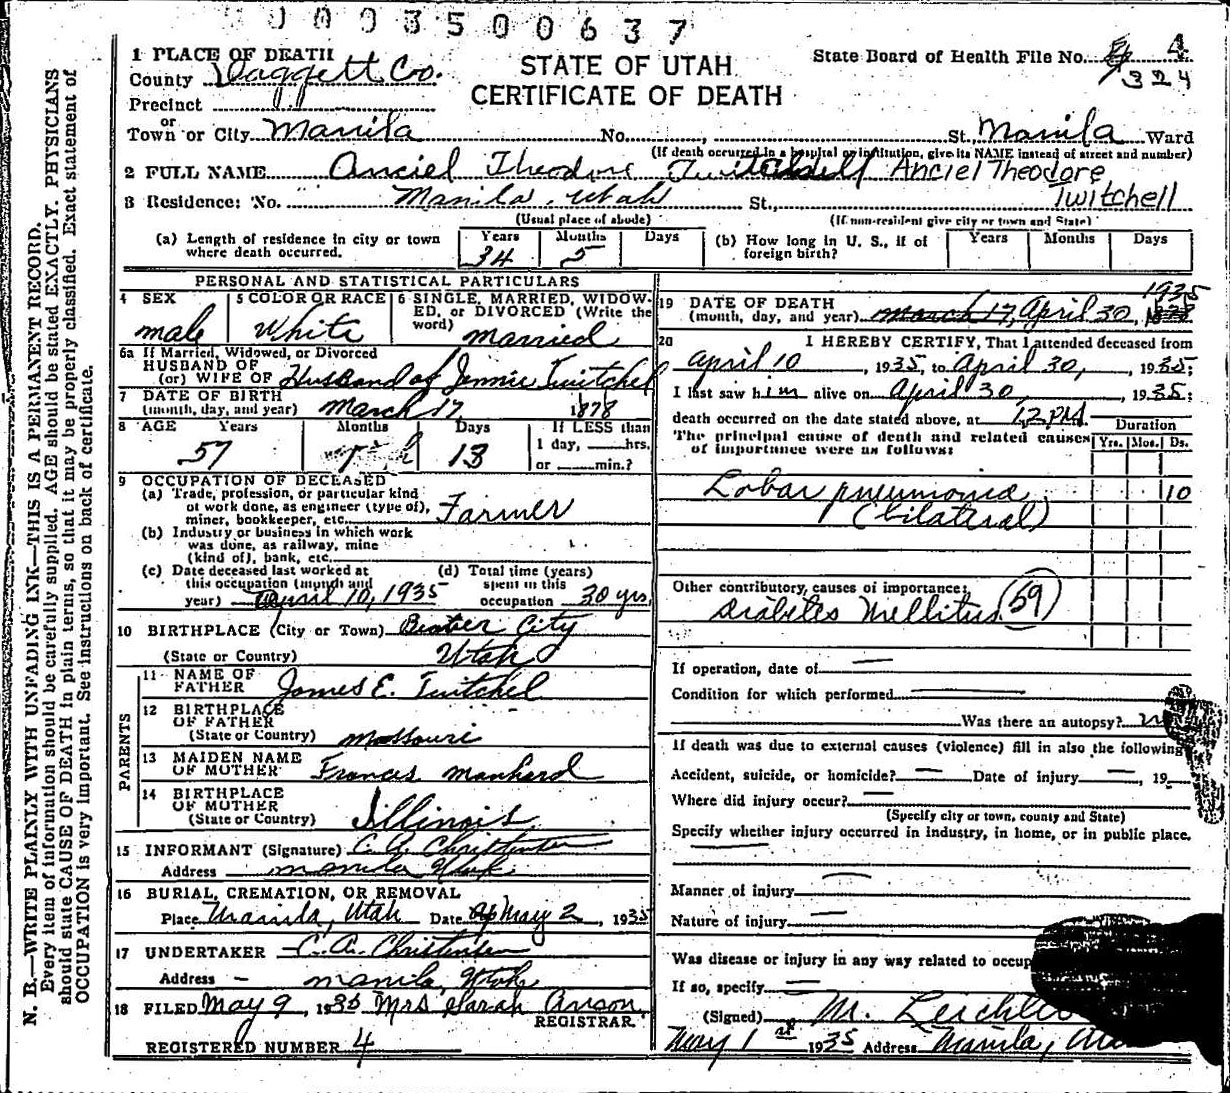 0003500637
1 PLACE OF DEATH
County Daggett Co.
Precinct
or
Town or City Manila No. St. Manila Ward
STATE OF UTAH
CERTIFICATE OF DEATH
State Board of Health File No. 4
324
(If death occurred in a hospital or institution, give its NAME instead of street and number)
2 FULL NAME Anciel Theodore Twitchell Anciel Theodore
Twitchell
3 Residence: No. Manila, Utah St.,
(Usual place of abode) (If non-resident give city or town and State)
(a) Length of residence in city or town where death occurred. Years 34 Months 5 Days
(b) How long in U. S., if of foreign birth? Years Months Days
PERSONAL AND STATISTICAL PARTICULARS
4 SEX male
5 COLOR OR RACE White
6 SINGLE, MARRIED, WIDOWED, or DIVORCED (Write the word) married
6a If Married, Widowed, or Divorced
HUSBAND OF
(or) WIFE OF Husband of Jennie Twitchel
7 DATE OF BIRTH
(month, day, and year) March 17 1878
8 AGE Years 57 Months Days 13 If LESS than
1 day, hrs.
or min.?
9 OCCUPATION OF DECEASED
(a) Trade, profession, or particular kind
of work done, as engineer (type of),
miner, bookkeeper, etc. Farmer
(b) Industry or business in which work
was done, as railway, mine
(kind of), bank, etc.
(c) Date deceased last worked at
this occupation (month and
year) April 10, 1935
(d) Total time (years)
spent in this
occupation 30 yrs.
10 BIRTHPLACE (City or Town) Beaver City
(State or Country) Utah
PARENTS
11 NAME OF
FATHER James E. Twitchel
12 BIRTHPLACE
OF FATHER
(State or Country) Missouri
13 MAIDEN NAME
OF MOTHER Frances Manhard
14 BIRTHPLACE
OF MOTHER
(State or Country) Illinois
15 INFORMANT (Signature) C. A. Christensen
Address Manila Utah.
16 BURIAL, CREMATION, OR REMOVAL
Place Manila, Utah Date May 2, 1935
17 UNDERTAKER C. A. Christensen
Address - Manila, Utah
18 FILED May 9, 1935 Mrs Sarah Anson
REGISTRAR
REGISTERED NUMBER 4
19 DATE OF DEATH 1935
(month, day, and year) March 17, April 30,
20 I HEREBY CERTIFY, That I attended deceased from
April 10, 1935, to April 30, 1935;
I last saw him alive on April 30, 1935;
death occurred on the date stated above, at 12 PM.
The principal cause of death and related causes
of importance were as follows:
Duration
Yrs. Mos. Ds.
Lobar pneumonia 10
(bilateral)
Other contributory causes of importance:
Diabetes Mellitus (59)
If operation, date of —
Condition for which performed —
Was there an autopsy? no
If death was due to external causes (violence) fill in also the following
Accident, suicide, or homicide? — Date of injury —, 19
Where did injury occur? —
(Specify city or town, county and State)
Specify whether injury occurred in industry, in home, or in public place.
Manner of injury —
Nature of injury —
Was disease or injury in any way related to occup
If so, specify —
(Signed) M.
May 1st 1935 Address Manila,
N. B.—WRITE PLAINLY WITH UNFADING INK—THIS IS A PERMANENT RECORD.
Every item of information should be carefully supplied. AGE should be stated EXACTLY. PHYSICIANS
should state CAUSE OF DEATH in plain terms, so that it may be properly classified. Exact statement of
OCCUPATION is very important. See instructions on back of certificate.